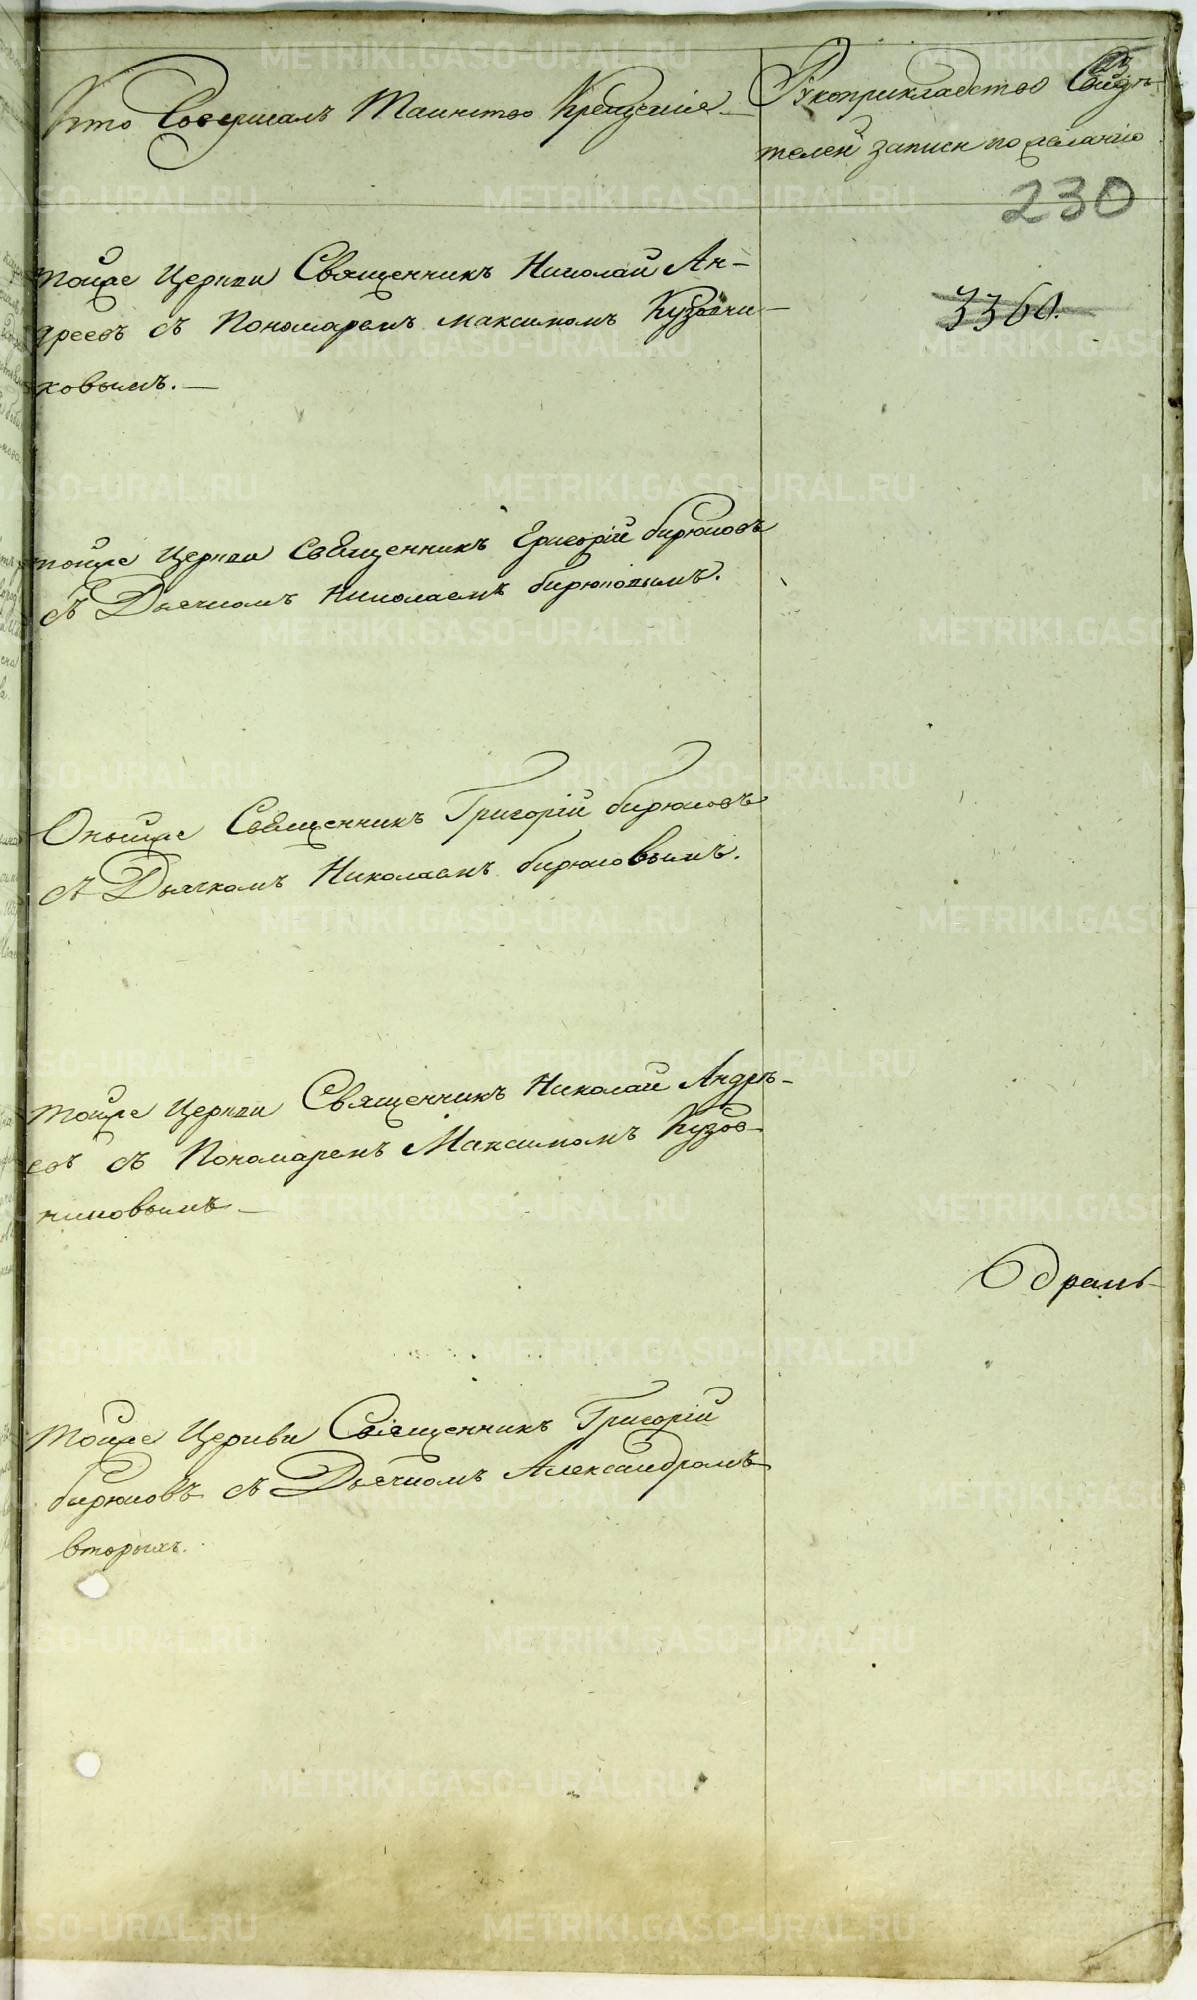 Кто Совершалъ Таинство Крещение
Рукоприкладство Свидѣ-
телей записи по желанію
230
тойже Церкви Священникъ Николай Ан-
дреевъ съ Пономаремъ Максимомъ Кузовни-
ковымъ.
3360.
тойже Церкви Священникъ Григорій бирюковъ
съ Дьячкомъ Николаемъ бирюковымъ.
Онъйже Священникъ Григорій бирюковъ
съ Дьячкомъ Николаемъ бирюковымъ.
тойже Церкви Священникъ Николай Андрѣ-
евъ съ Пономаремъ Максимомъ Кузов-
никовымъ
тойже Церкви Священникъ Григорій
бирюковъ съ Дьячкомъ Александромъ
вторыхъ.
METRIKI.GASO-URAL.RU